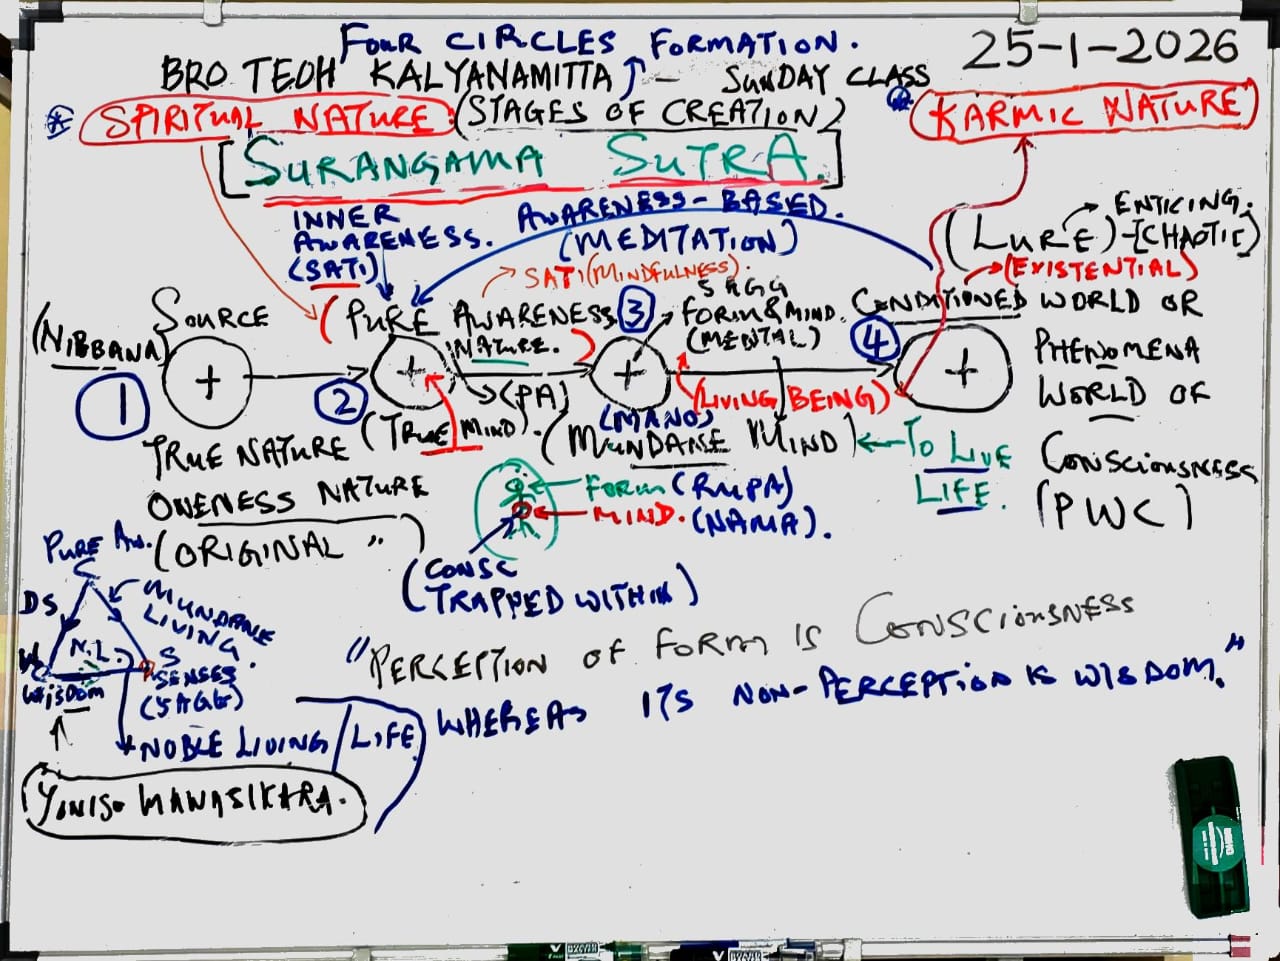 FOUR CIRCLES FORMATION.
25-1-2026
BRO TEOH KALYANAMITTA - SUNDAY CLASS
* SPIRITUAL NATURE: (STAGES OF CREATION)
* KARMIC NATURE
[SURANGAMA SUTRA.]
INNER AWARENESS. (SATI)
AWARENESS-BASED. (MEDITATION)
(LURE)-[CHAOTIC]
ENTICING.
(EXISTENTIAL)
SATI (MINDFULNESS).
(NIBBANA)
SOURCE
(PURE AWARENESS NATURE.)
(PA)
5AGG
FORM & MIND.
(MENTAL)
CONDITIONED WORLD OR
PHENOMENA
WORLD OF
CONSCIOUSNESS
(PWC)
1
+
2
+
3
+
4
+
TRUE NATURE
ONENESS NATURE
(ORIGINAL ")
(TRUE MIND).
(LIVING BEING)
(MANO)
(MUNDANE MIND)
TO LIVE
LIFE.
FORM (RUPA)
MIND. (NAMA).
(CONSC
TRAPPED WITHIN)
PURE AW.
DS
MUNDANE
LIVING.
N.L.
W
WISDOM
S
SENSES
(5AGG)
NOBLE LIVING/LIFE
YONISO MANASIKARA.
"PERCEPTION OF FORM IS CONSCIOUSNESS
WHEREAS ITS NON-PERCEPTION IS WISDOM."